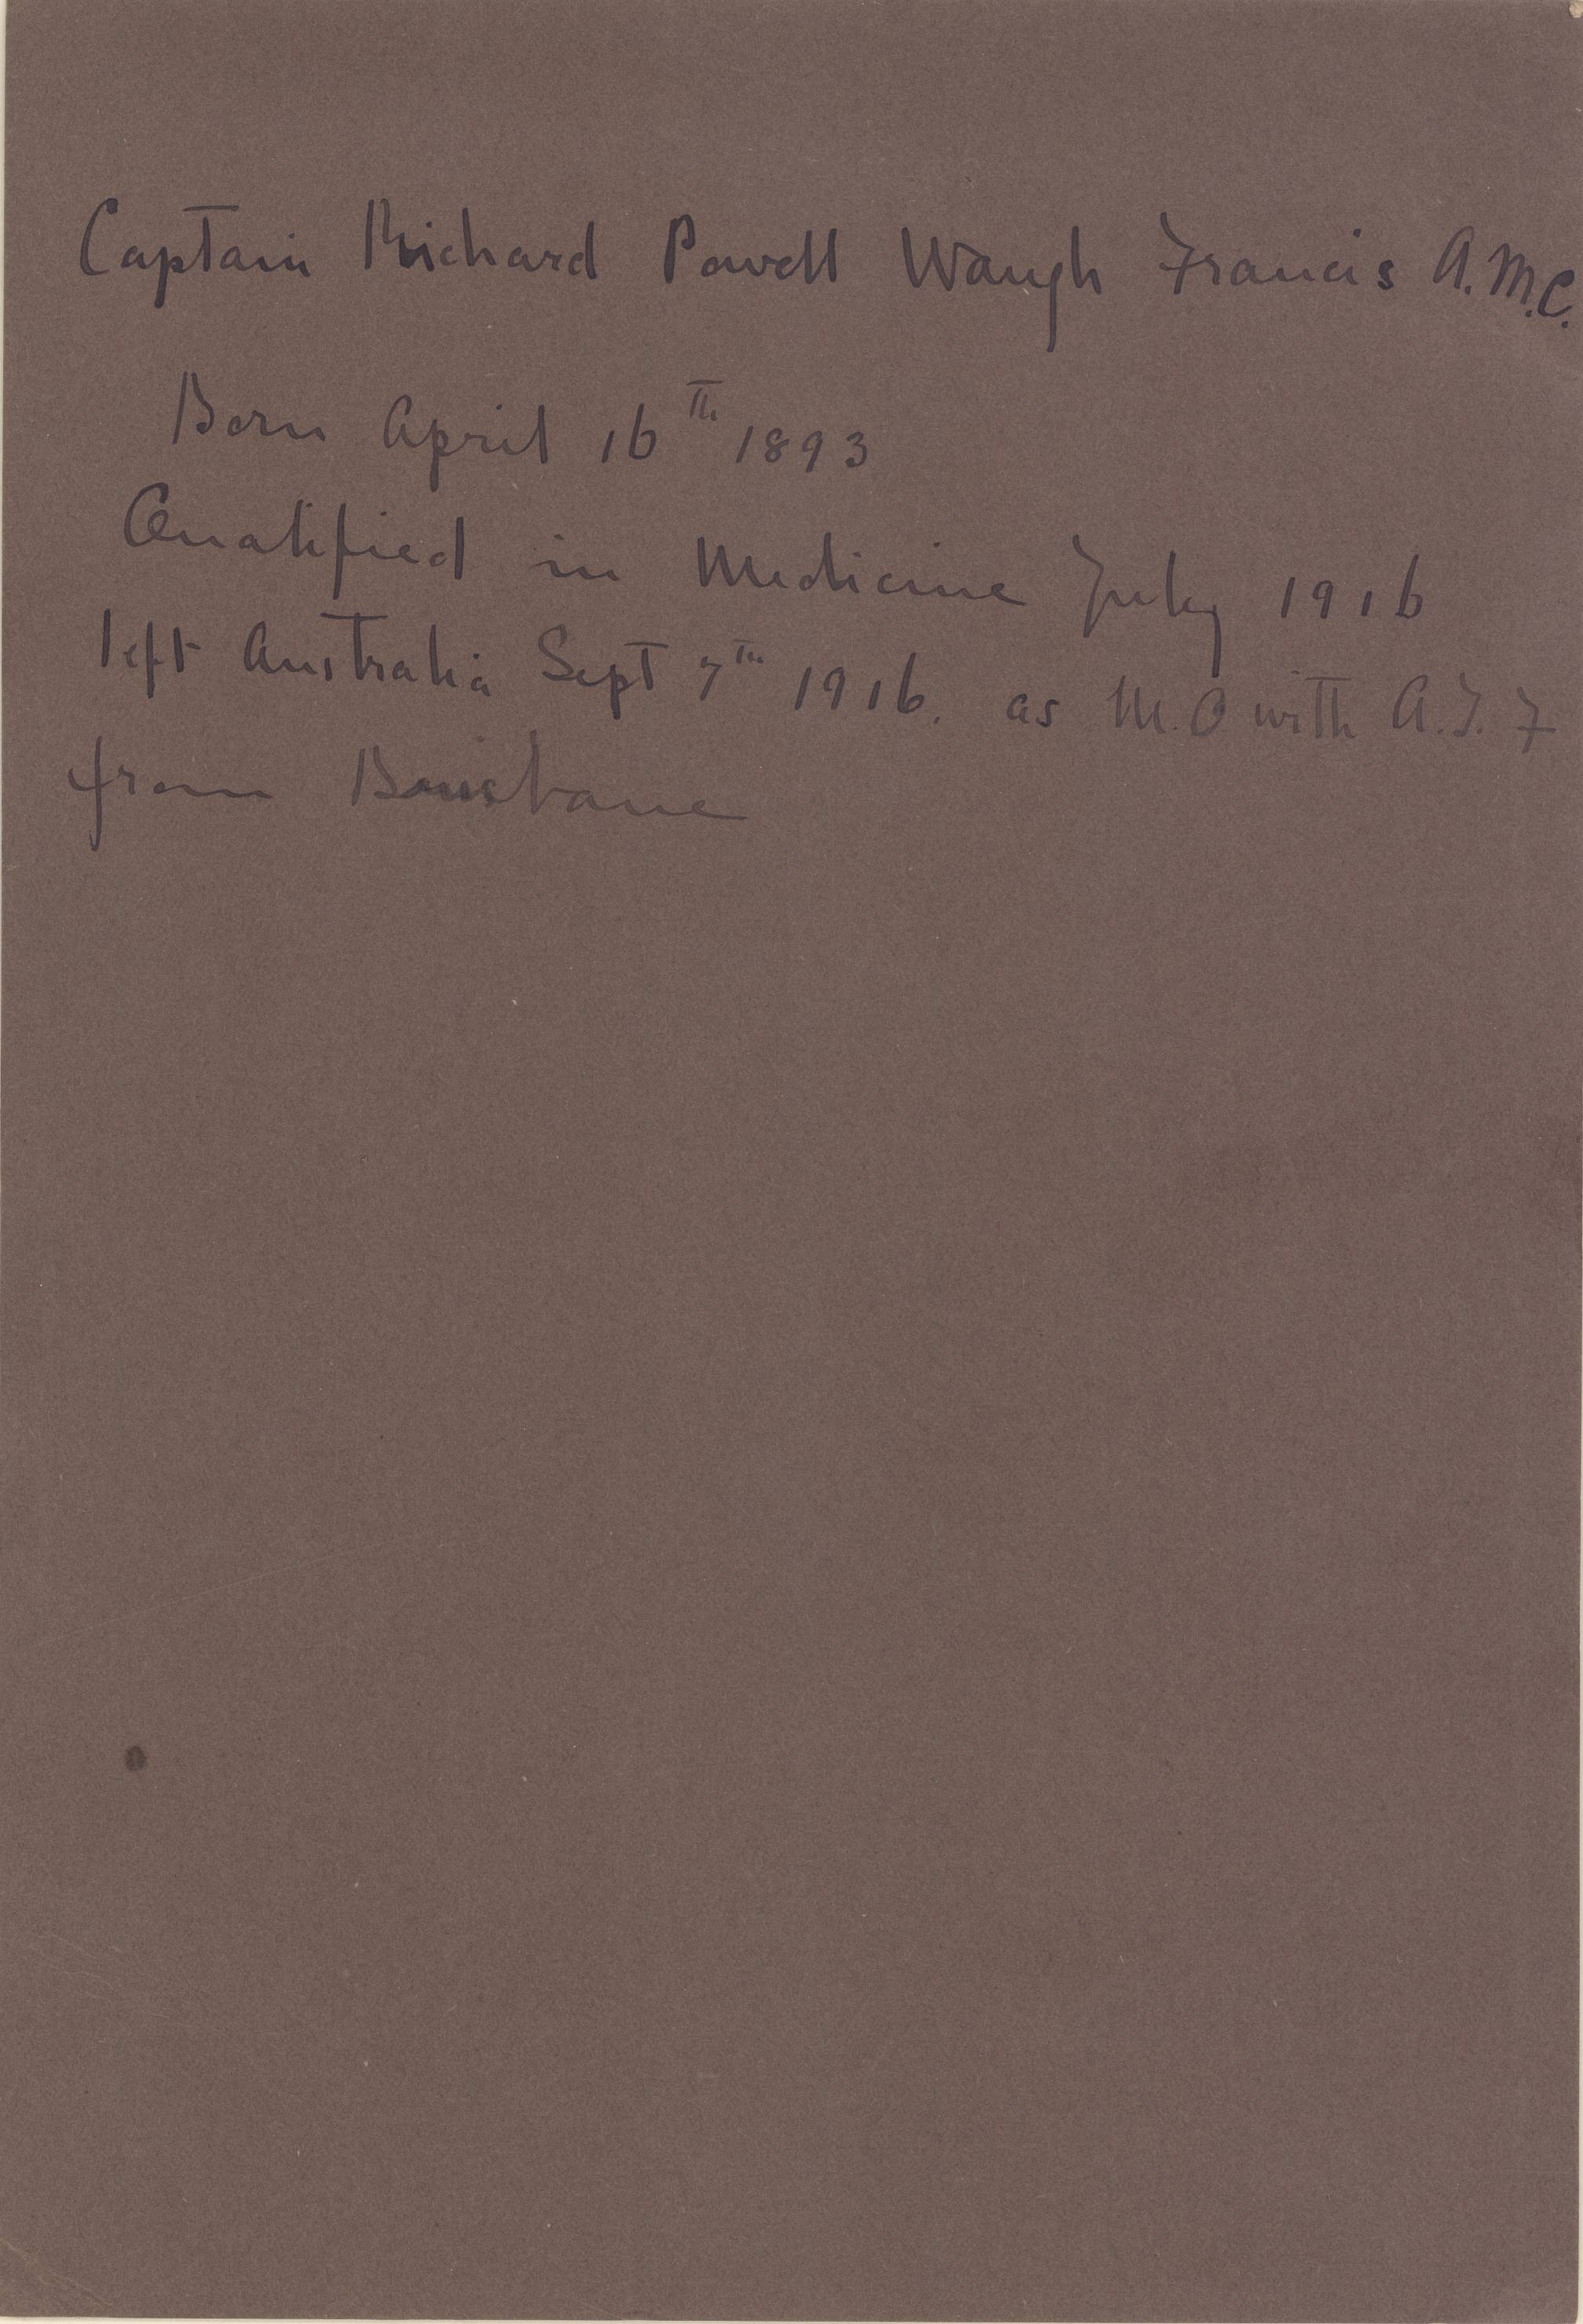 Captain Richard Powell Waugh Francis A.M.C.
Born April 16th 1893
Qualified in Medicine July 1916
left Australia Sept 7th 1916. as M.O with A.I.F
from Brisbane